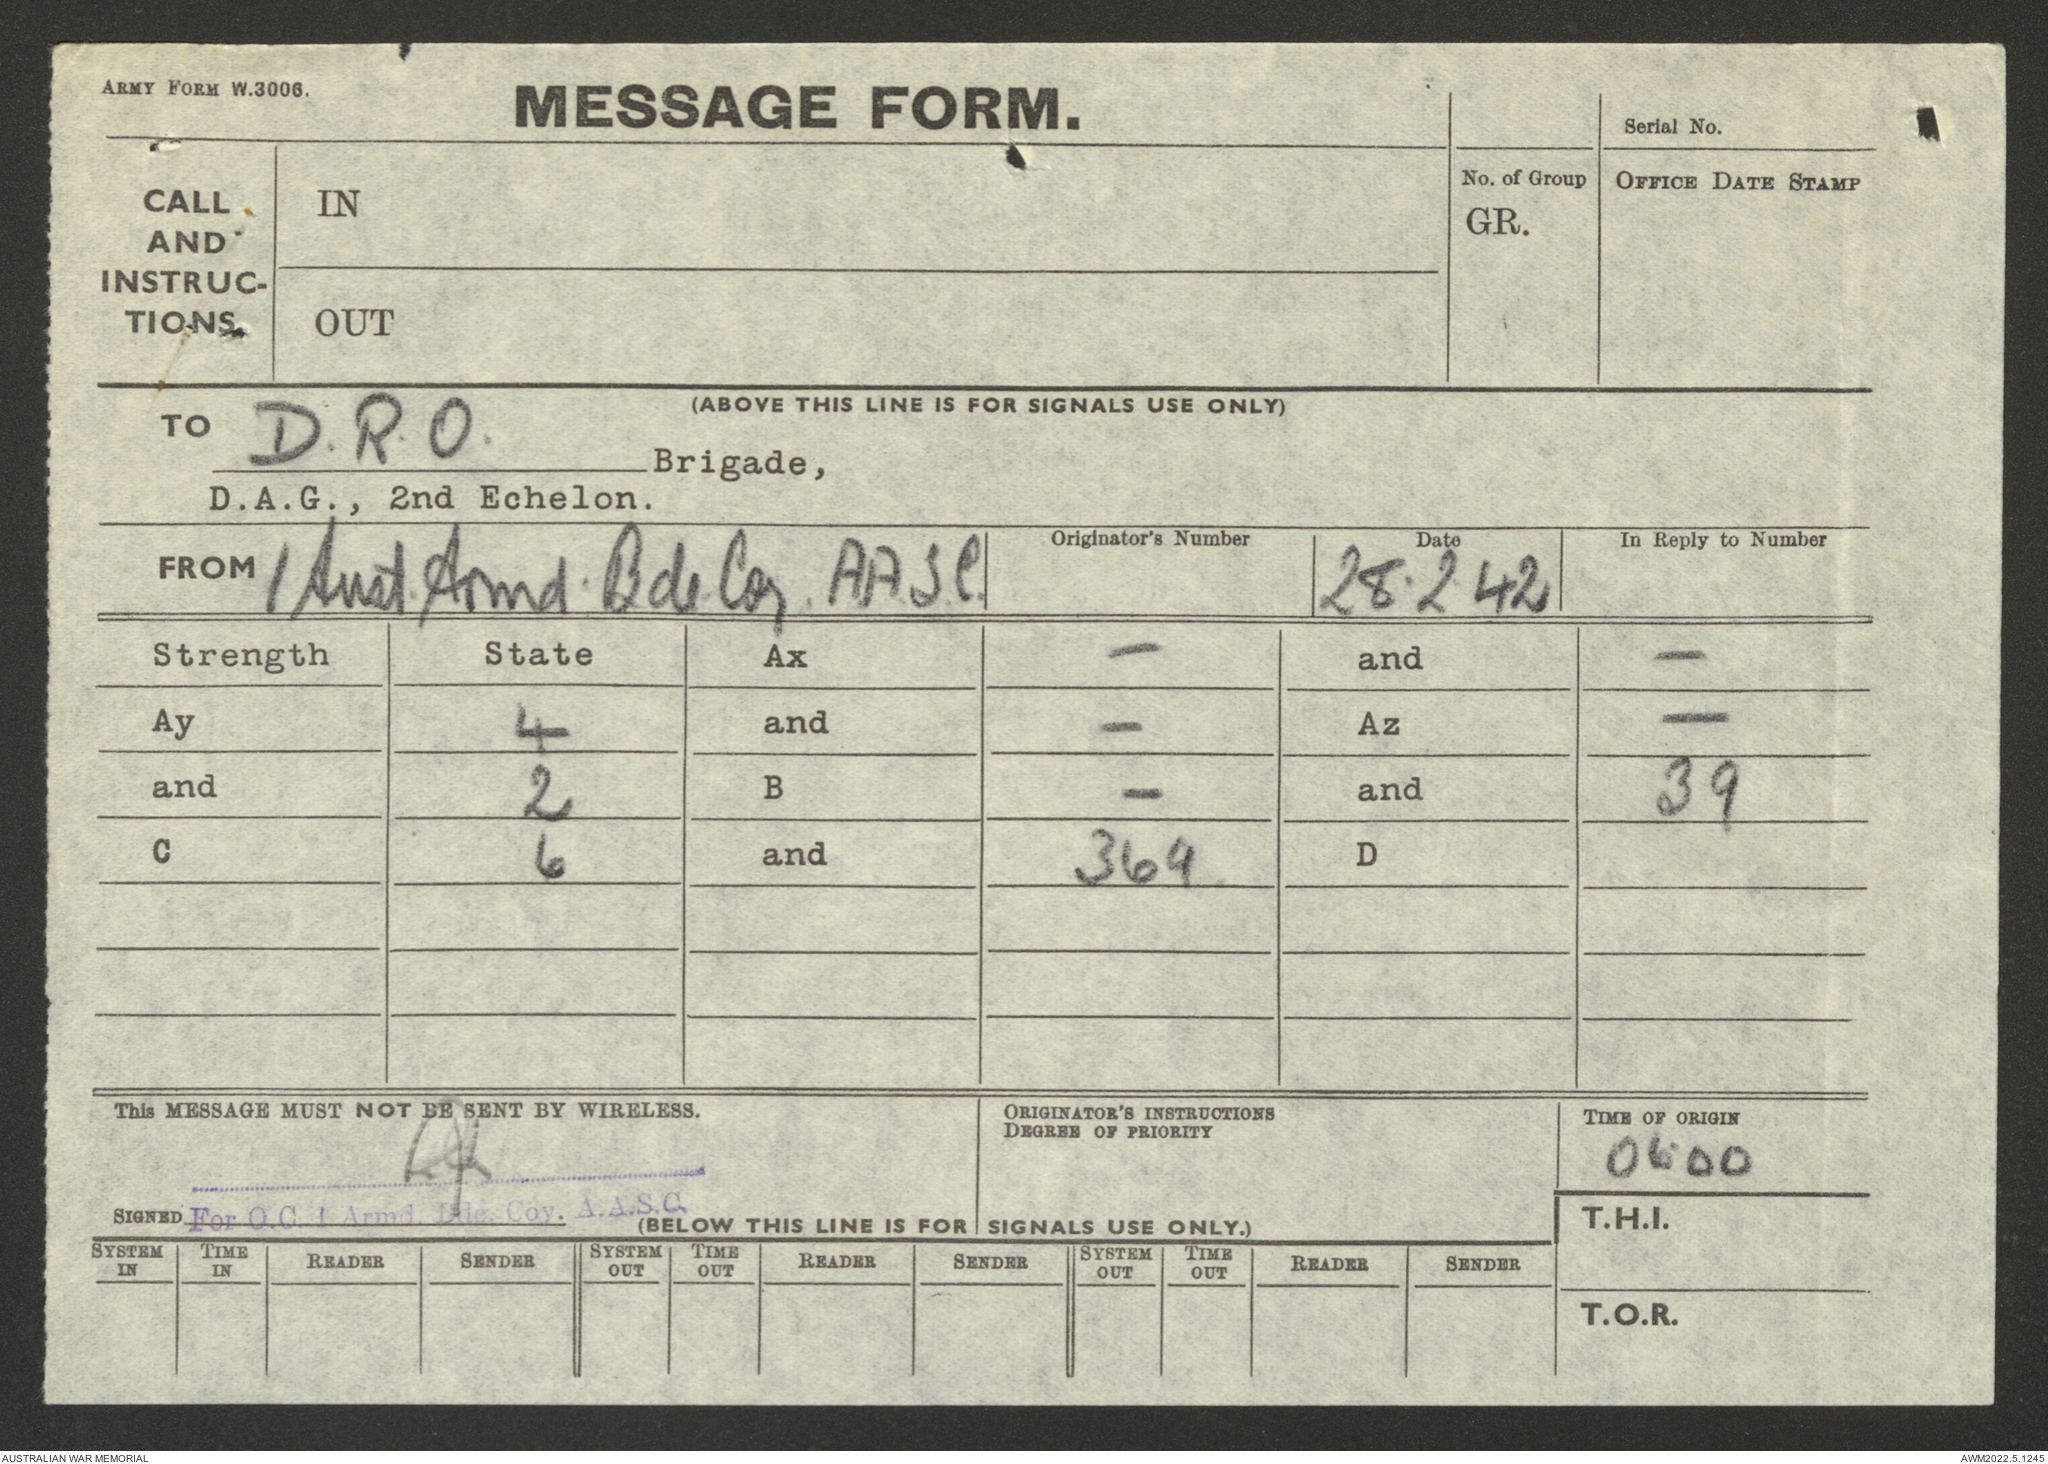 ARMY FORM W.3006.
MESSAGE FORM.
Serial No.
CALL AND INSTRUC-TIONS.
IN
No. of Group
GR.
OFFICE DATE STAMP
OUT
(ABOVE THIS LINE IS FOR SIGNALS USE ONLY)
TO D.R.O. Brigade,
D.A.G., 2nd Echelon.
FROM 1 Aust. Armd. Bde Coy. A.A.S.C.
Originator's Number
Date
28.2.42
In Reply to Number
Strength State Ax — and —
Ay 4 and — Az —
and 2 B — and 39
C 6 and 369 D
This MESSAGE MUST NOT BE SENT BY WIRELESS.
ORIGINATOR'S INSTRUCTIONS
DEGREE OF PRIORITY
TIME OF ORIGIN
0600
SIGNED For O.C. 1 Armd. Bde. Coy. A.A.S.C.
(BELOW THIS LINE IS FOR SIGNALS USE ONLY.)
T.H.I.
SYSTEM IN TIME IN READER SENDER SYSTEM OUT TIME OUT READER SENDER SYSTEM OUT TIME OUT READER SENDER
T.O.R.
AUSTRALIAN WAR MEMORIAL
AWM2022.5.1245